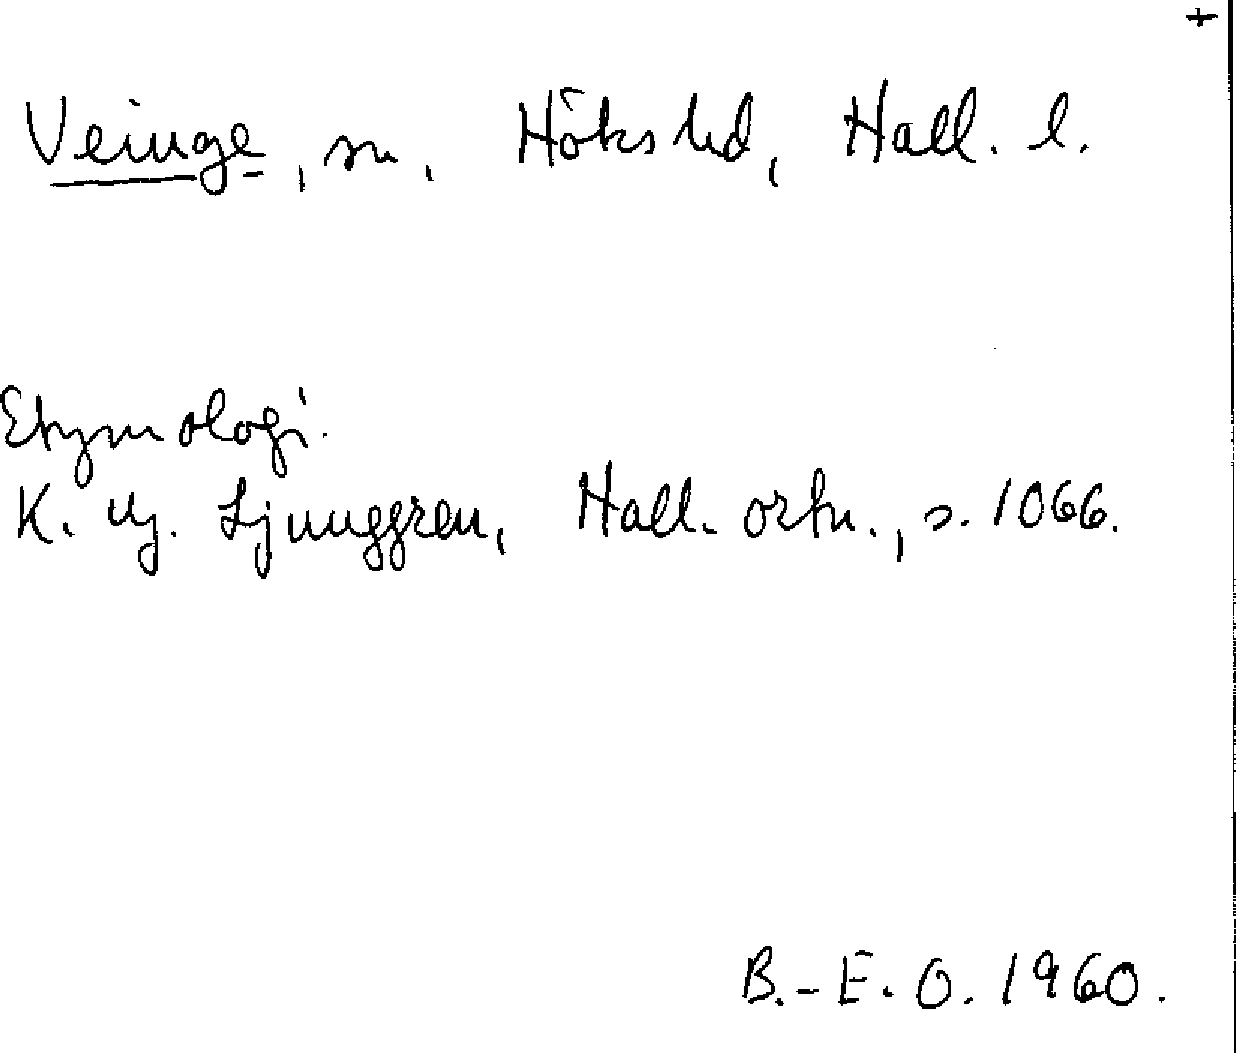 +
Veinge, sn, Höks hd, Hall. l.
Etymologi.
K. Hj. Ljunggren, Hall. ortn., s. 1066.
B.-E. O. 1960.